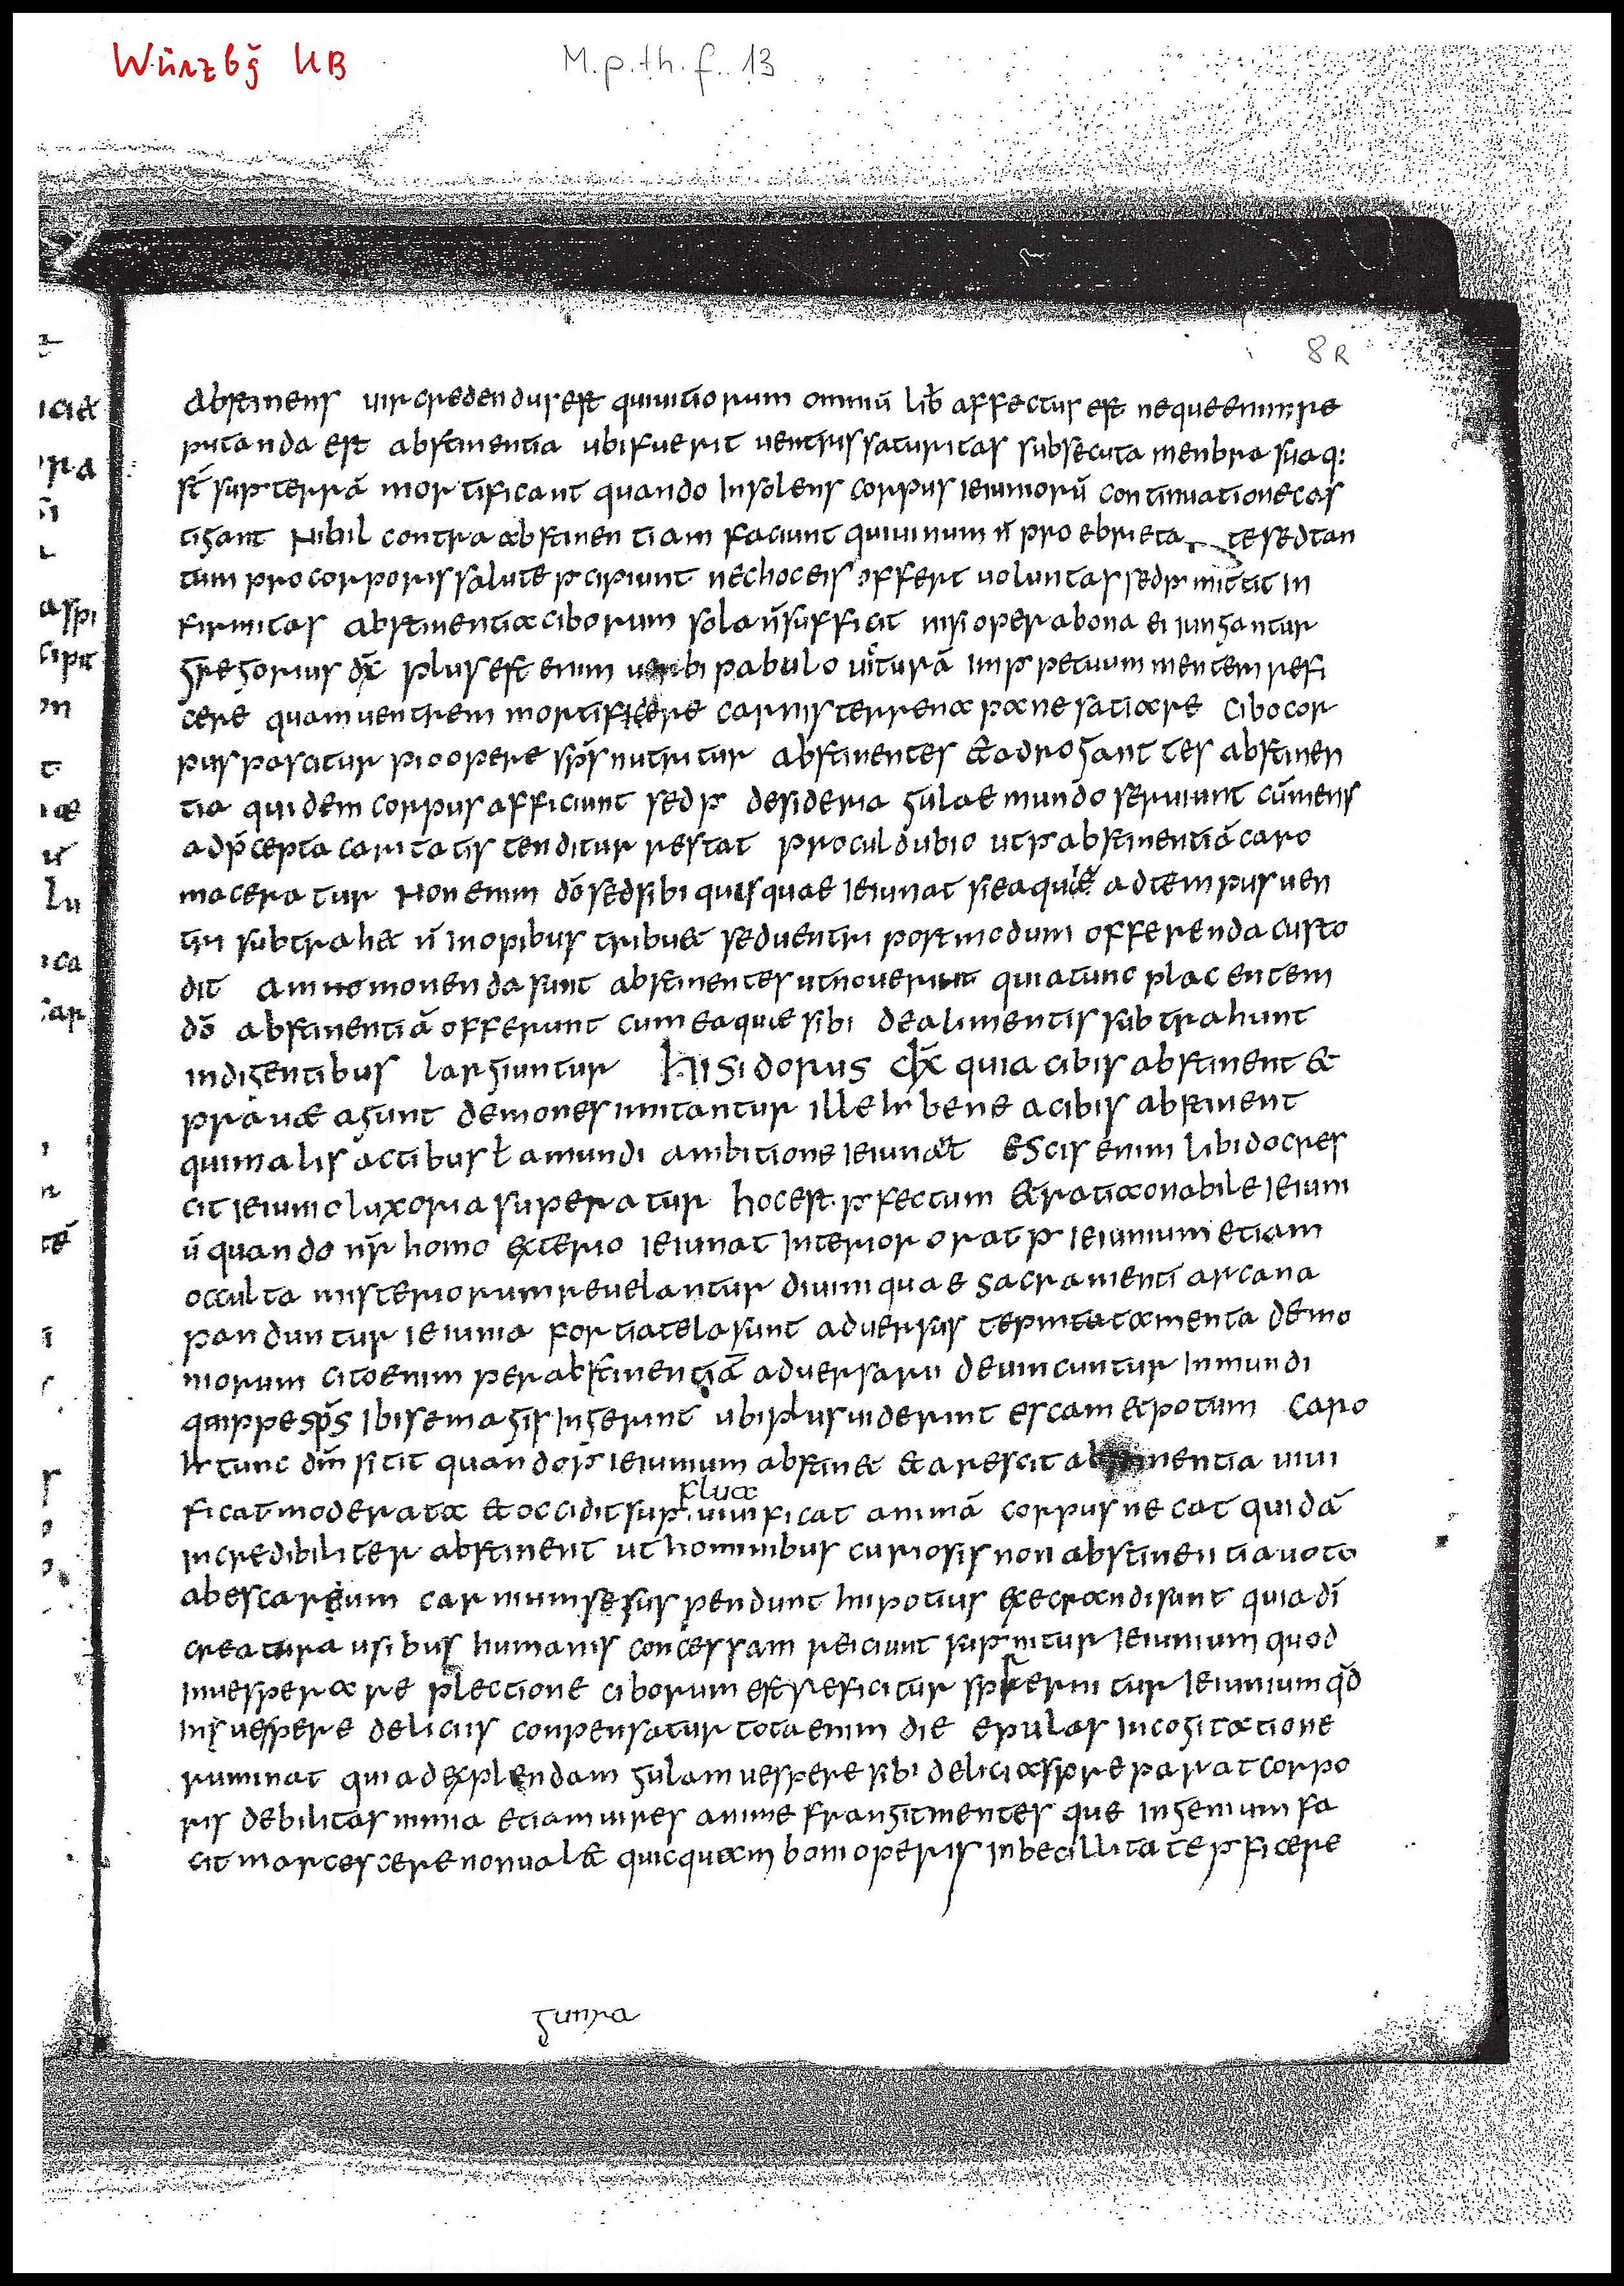 Würzbg̃ UB
M.p.th.f. 13
8R
abstinens uir credendus est quiuitiorum omniū lib̄ affectus est nequeenim re
putanda est abstinentia ubifuerit uentris saturitas subsecuta menbra suaq:
st̄ sup terrā mortificant quando Insolens corpus Ieiuniorū continuationecas
tigant Nihil contra abstinentiam faciunt quiuinum n̄ pro ebrieta tesedtan
tum procorporis salute p̄cipiunt nechoceis offert uoluntas sedp̄ mittit in
firmitas abstinentiaciborum sola n̄sufficit nisi opera bona ei iungantur
gregorius dx̄ plus est enim uerbi pabulo uicturā Imp̄petuum mentem refi
cere quam uentrem mortificere carnis terrena pane satiare Cibocor
pus pascitur pioopere sp̄s nutritur abstinentes &adrogant tes abstinen
tia quidem corpus afficiunt sedp̄ desideria gulae mundo seruiunt cūmens
adp̄cepta caritatis tenditur restat proculdubio utp̄abstinentiā caro
maceratur Nonenim dō sedsibi quisquae Ieiunat siea quae adtempus uen
tri subtrah& n̄ Inopibus tribu& seduentri postmodum offerenda custo
dit ammomonenda sunt abstinentes utnouerint quiatunc placentem
dō abstinentiā offerunt cum eaquae sibi dealimentis subtrahunt
indigentibus largiuntur hisidorus dx̄ quia cibis abstinent &
prauae agunt demones imitantur ille h̄ bene acibis abstinent
quimalis actibus ł amundi ambitione Ieiunat escis enim libidocres
cit Ieiunioluxoria superatur hocest p̄fectum &rationabile Ieiuni
ū quando nr̄ homo exterio Ieiunat Interior orat p̄ Ieiunium etiam
occulta misteriorum reuelantur diuiniquae sacramenti arcana
panduntur Ieiunia fortiatela sunt aduersus temtamenta demo
niorum citoenim perabstinentiā aduersarii deuincuntur Inmundi
quippe sp̄s Ibisemagis Ingerint ubiplus uiderint escam &potum caro
h̄ tunc dm̄ sitit quandop̄ Ieiunium abstin& &arescit abstinentia uiui
flua
ficatmoderata &occiditsup̄ uiuificat animā corpus necat quidā
incredibiliter abstinent ut hominibus curiosis non abstinentiauoto
abescareum carniumsesuspendunt hiipotius execrandisunt quia dī
creatura usibus humanis concessam reiciunt sup̄nitur Ieiunium quod
Inuespera re p̄lectione ciborum est reficitur spernitur Ieiunium qd̄
Ins uespere deliciis conpensatur totaenim die epulas Incogitatione
ruminat qui adexplendam gulam uespere sibi deliciaspreparat corpo
ris debilitas nimia etiamuires anime frangitmentes que Ingenium fa
cit marcescere nonual& quicquam bonioperis Inbecillitate p̄ficere
gunza